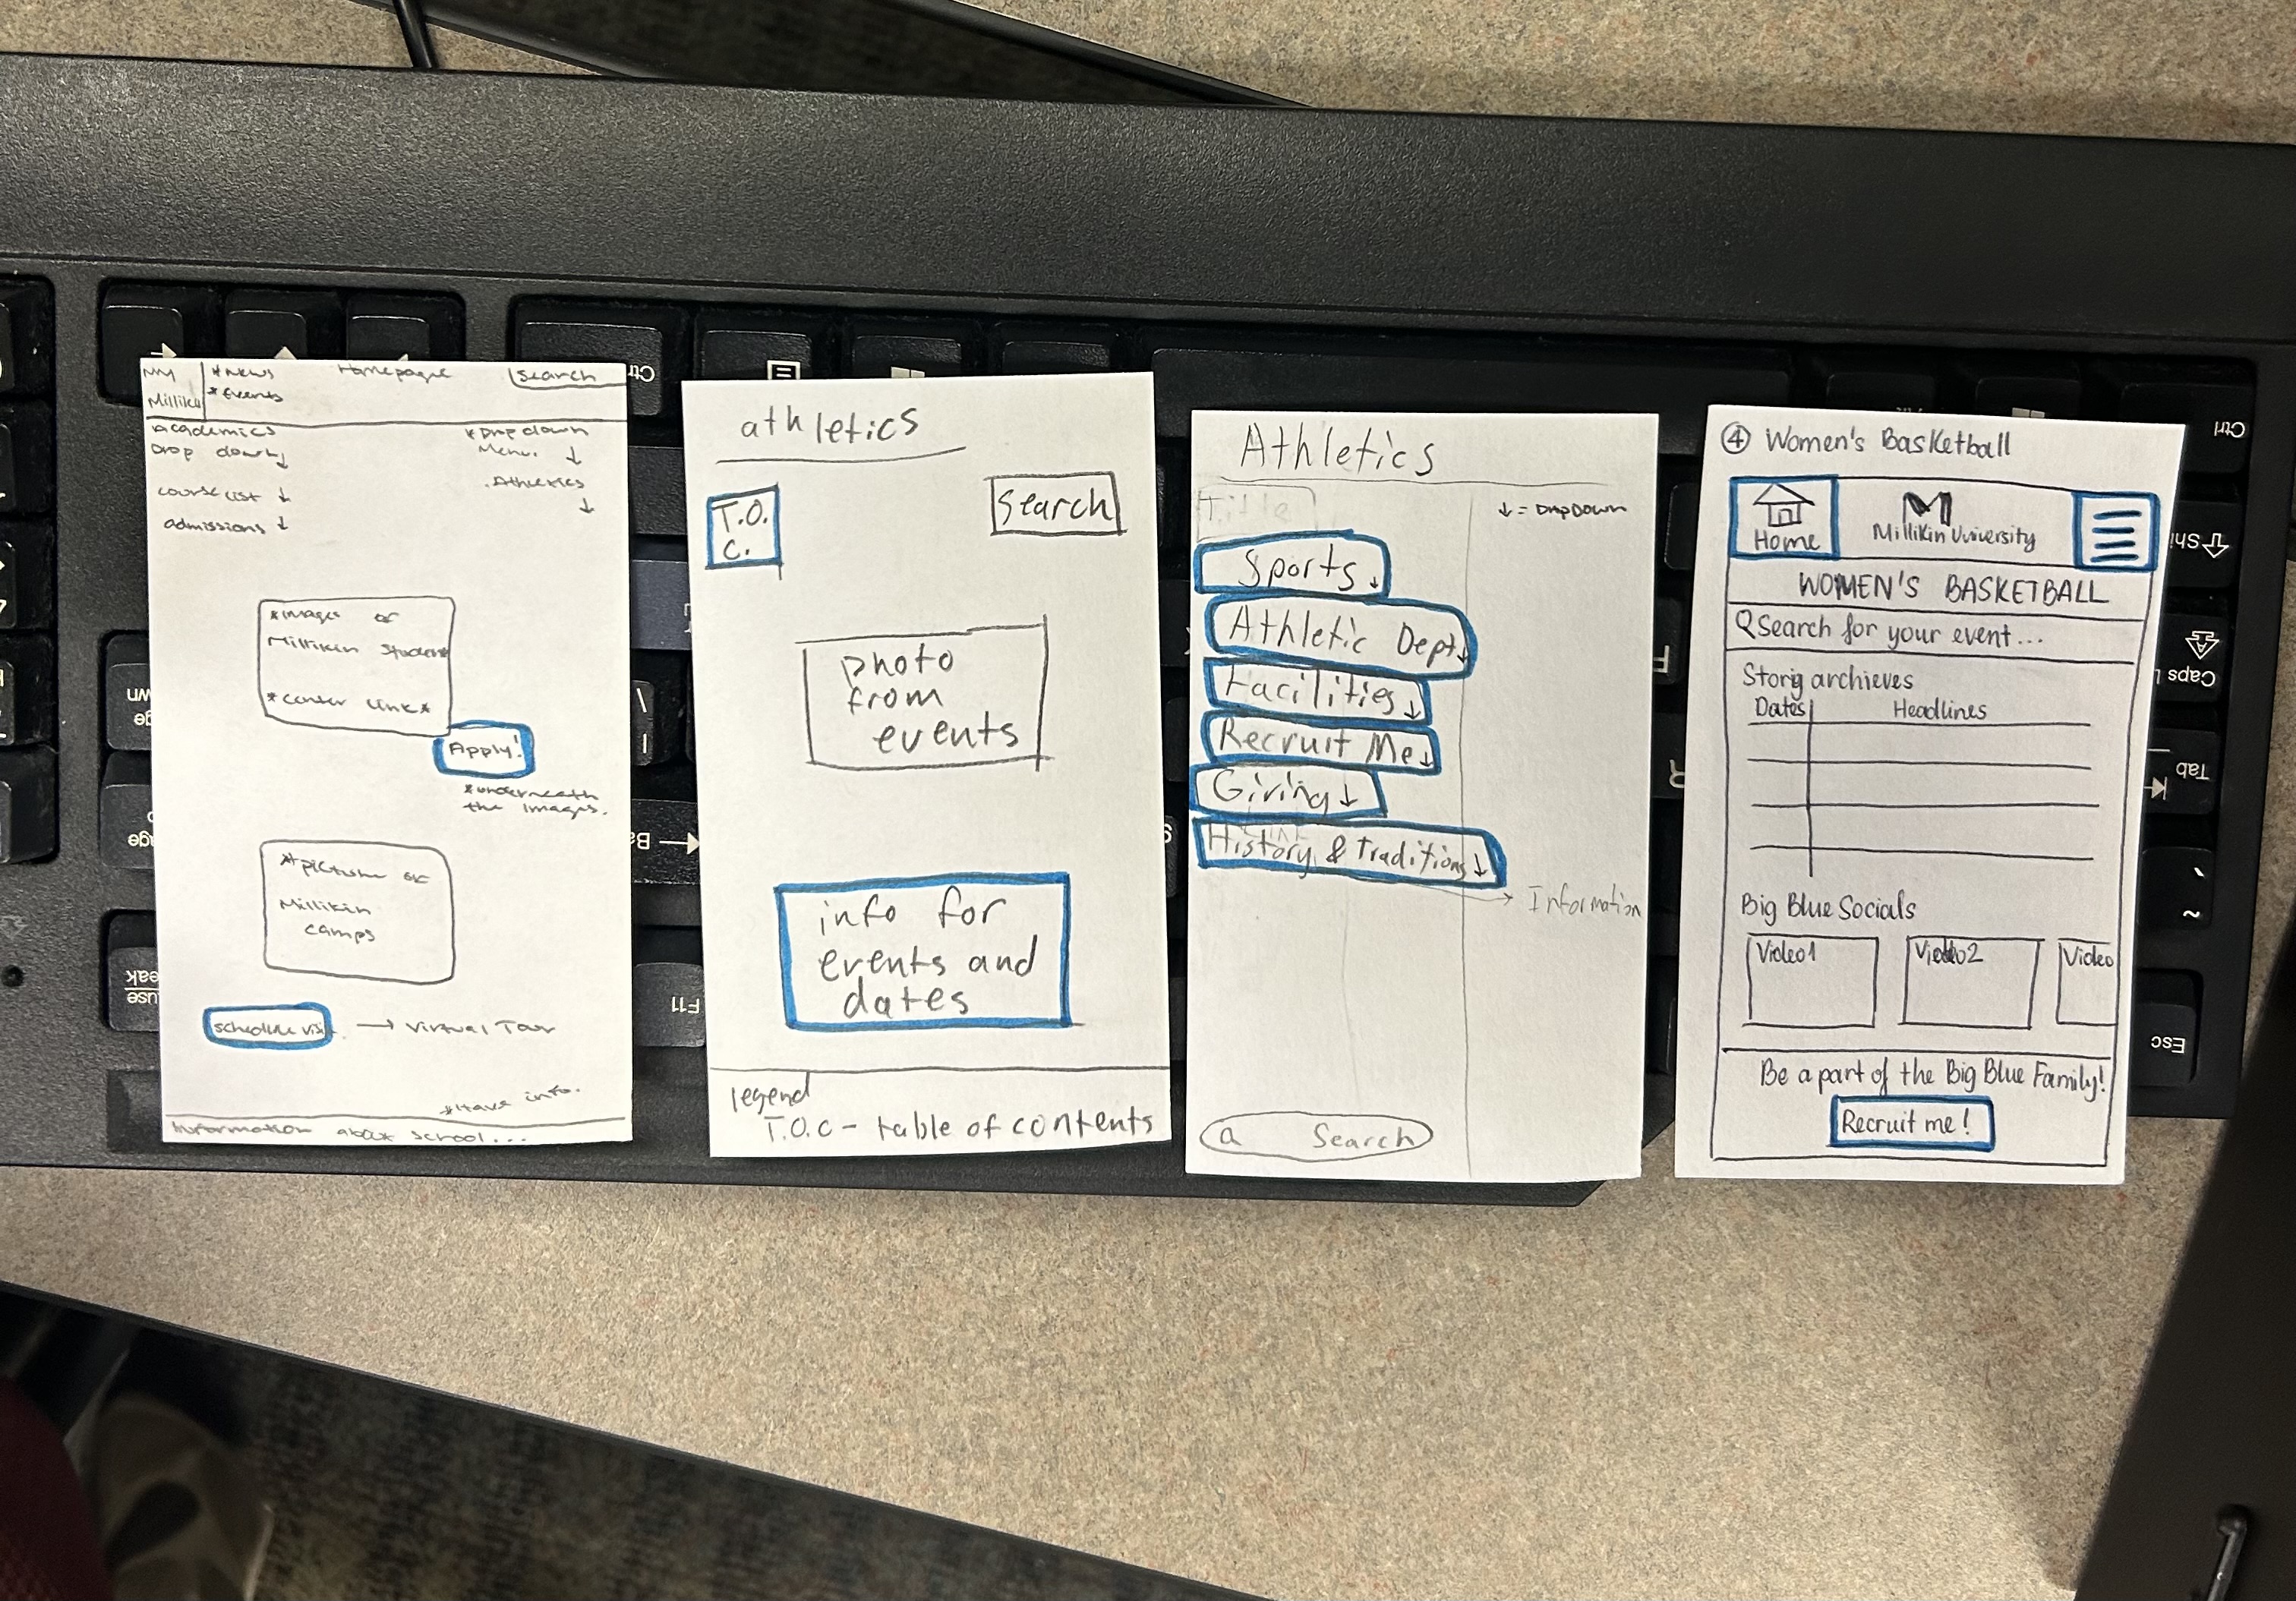 My
Millikin
*News
*Events
Homepage
Search
Academics
Drop down↓
course list ↓
admissions ↓
*Drop down
Menu. ↓
.Athletics
↓
*Images of
Millikin Student
*center link*
Apply!
*underneath
the images.
*picture of
Millikin
camps
schedule visit → Virtual Tour
*Have info.
Information about school...
athletics
T.O.
C.
Search
photo
from
events
info for
events and
dates
legend
T.O.C - table of contents
Athletics
Title
↓ = DropDown
Sports↓
Athletic Dept↓
Facilities↓
Recruit Me↓
Giving↓
History & Traditions↓
→ Information
Search
④ Women's Basketball
Home
M
Millikin University
WOMEN'S BASKETBALL
Search for your event...
Story archieves
Dates
Headlines
Big Blue Socials
Video1
Video2
Video
Be a part of the Big Blue Family!
Recruit me!
Ctrl
Ctrl
Shi
Caps L
Tab
Esc
F11
~
`
\
|
Ba